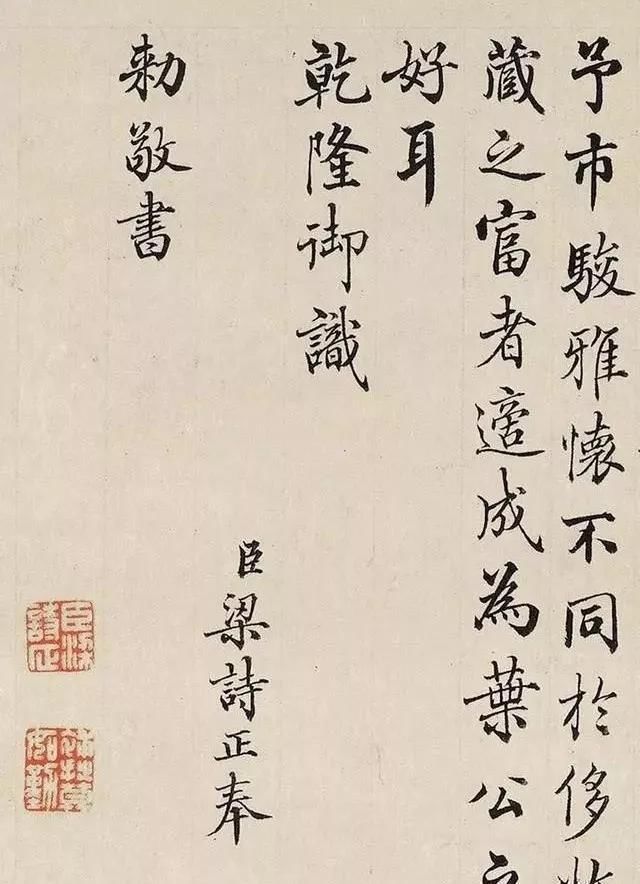 予市駿雅懷不同於侈收
藏之富者適成為葉公之
好耳
乾隆御識
臣梁詩正奉
勅敬書
臣梁詩正
補拙莫如勤